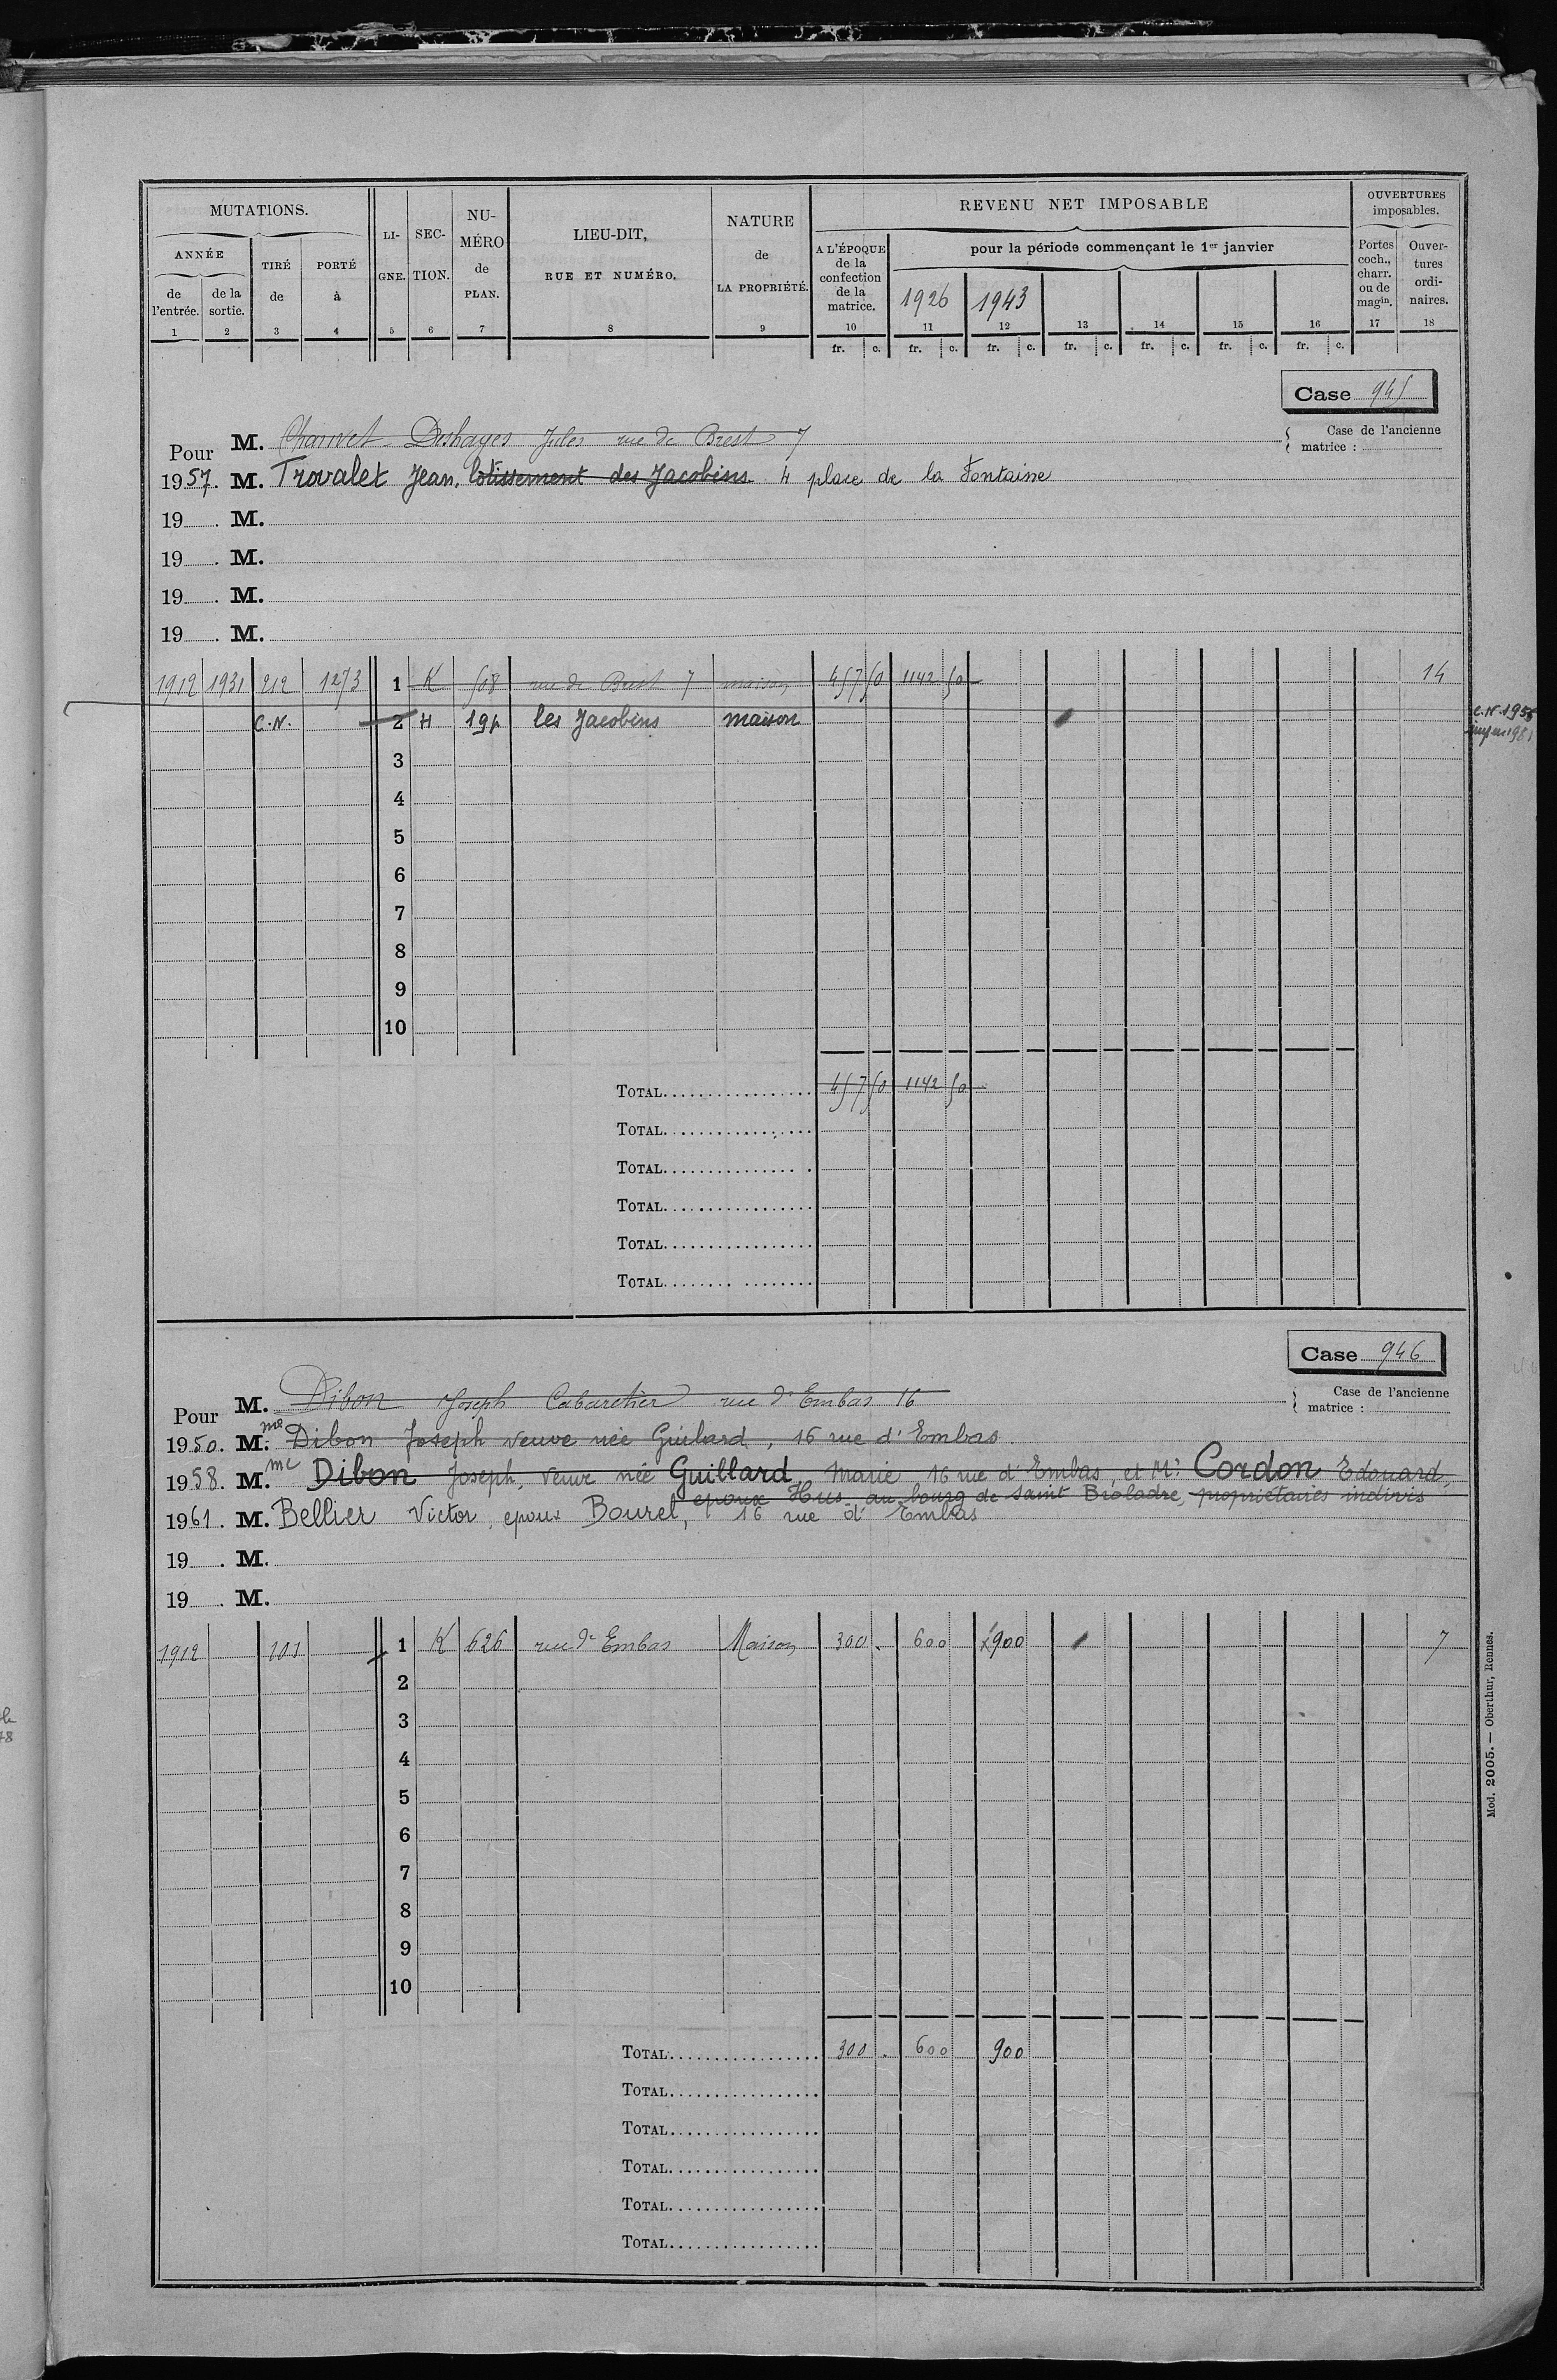 MUTATIONS.
ANNÉE
de l'entrée.
de la sortie.
TIRÉ de
PORTÉ à
LI-GNE.
SEC-TION.
NU-MÉRO de PLAN.
LIEU-DIT, RUE ET NUMÉRO.
NATURE de LA PROPRIÉTÉ.
REVENU NET IMPOSABLE
A L'ÉPOQUE de la confection de la matrice.
pour la période commençant le 1er janvier
1926 1943
OUVERTURES imposables.
Portes coch., charr. ou de magin.
Ouver-tures ordi-naires.
1 2 3 4 5 6 7 8 9 10 11 12 13 14 15 16 17 18
fr. c. fr. c. fr. c. fr. c. fr. c. fr. c. fr. c.
Case 945
Pour M. Chauvet Deshayes Jules rue de Brest 7
Case de l'ancienne matrice :
1957. M. Trovalet Jean, lotissement des Jacobins 4 place de la Fontaine
19 . M.
19 . M.
19 . M.
19 . M.
1912 1931 212 1273 1 K 508 rue de Brest 7 maison 457 50 1142 50 14
C.N. 2 H 194 les Jacobins maison C.N. 1956
3
4
5
6
7
8
9
10
TOTAL 457 50 1142 50
TOTAL
TOTAL
TOTAL
TOTAL
TOTAL
Case 946
Pour M. Dibon Joseph Cabaretier rue d'Embas 16
Case de l'ancienne matrice :
1950. Mme Dibon Joseph veuve née Guilard, 16 rue d'Embas
1958. Mme Dibon Joseph, veuve née Guillard, Marie 16 rue d'Embas, et Mr Cordon Edouard,
epoux Hus au bourg de Saint Broladre, propriétaires indivis
1961. M. Bellier Victor, epoux Bourel, 16 rue d'Embas
19 . M.
19 . M.
1912 101 1 K 626 rue d'Embas Maison 300 . 600 x900 7
2
3
4
5
6
7
8
9
10
TOTAL 300 . 600 900
TOTAL
TOTAL
TOTAL
TOTAL
TOTAL
Mod. 2005. — Oberthur, Rennes.